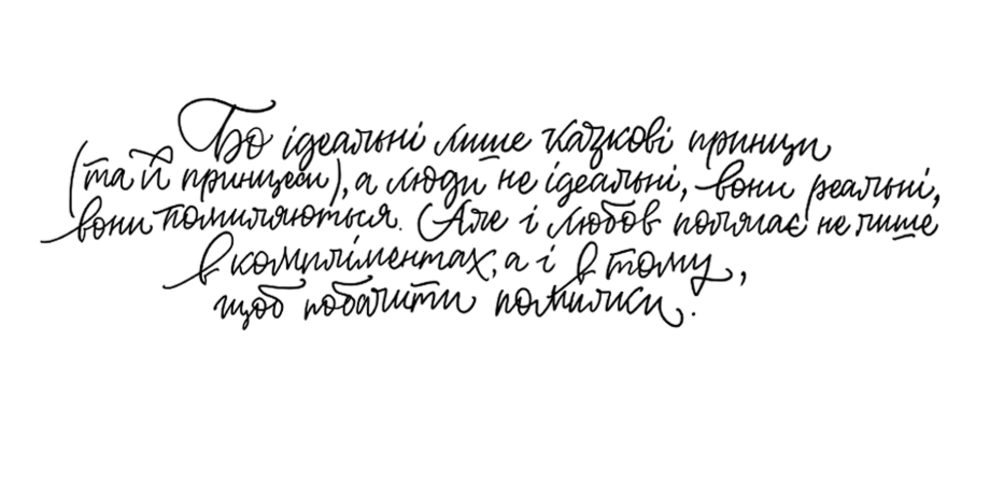 Бо ідеальні лише казкові принци
(та й принцеси), а люди не ідеальні, вони реальні,
вони помиляються. Але і любов полягає не лише
в компліментах, а і в тому,
щоб побачити помилки.